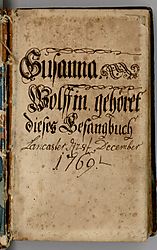 Susanna
Wolfin gehöret
dieses Gesangbuch
Lancaster d. 29st December
1769.